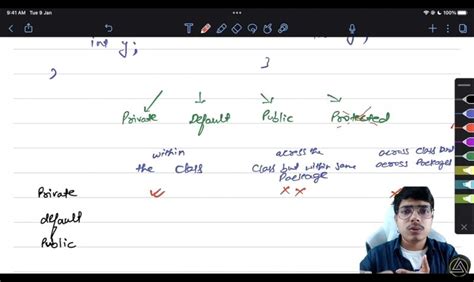 9:41 AM Tue 9 Jan
100%
int y;
}
}
Private Default Public Protected
within the Class
across the Class but within same Package
across Class but across Packages
Private
default
Public